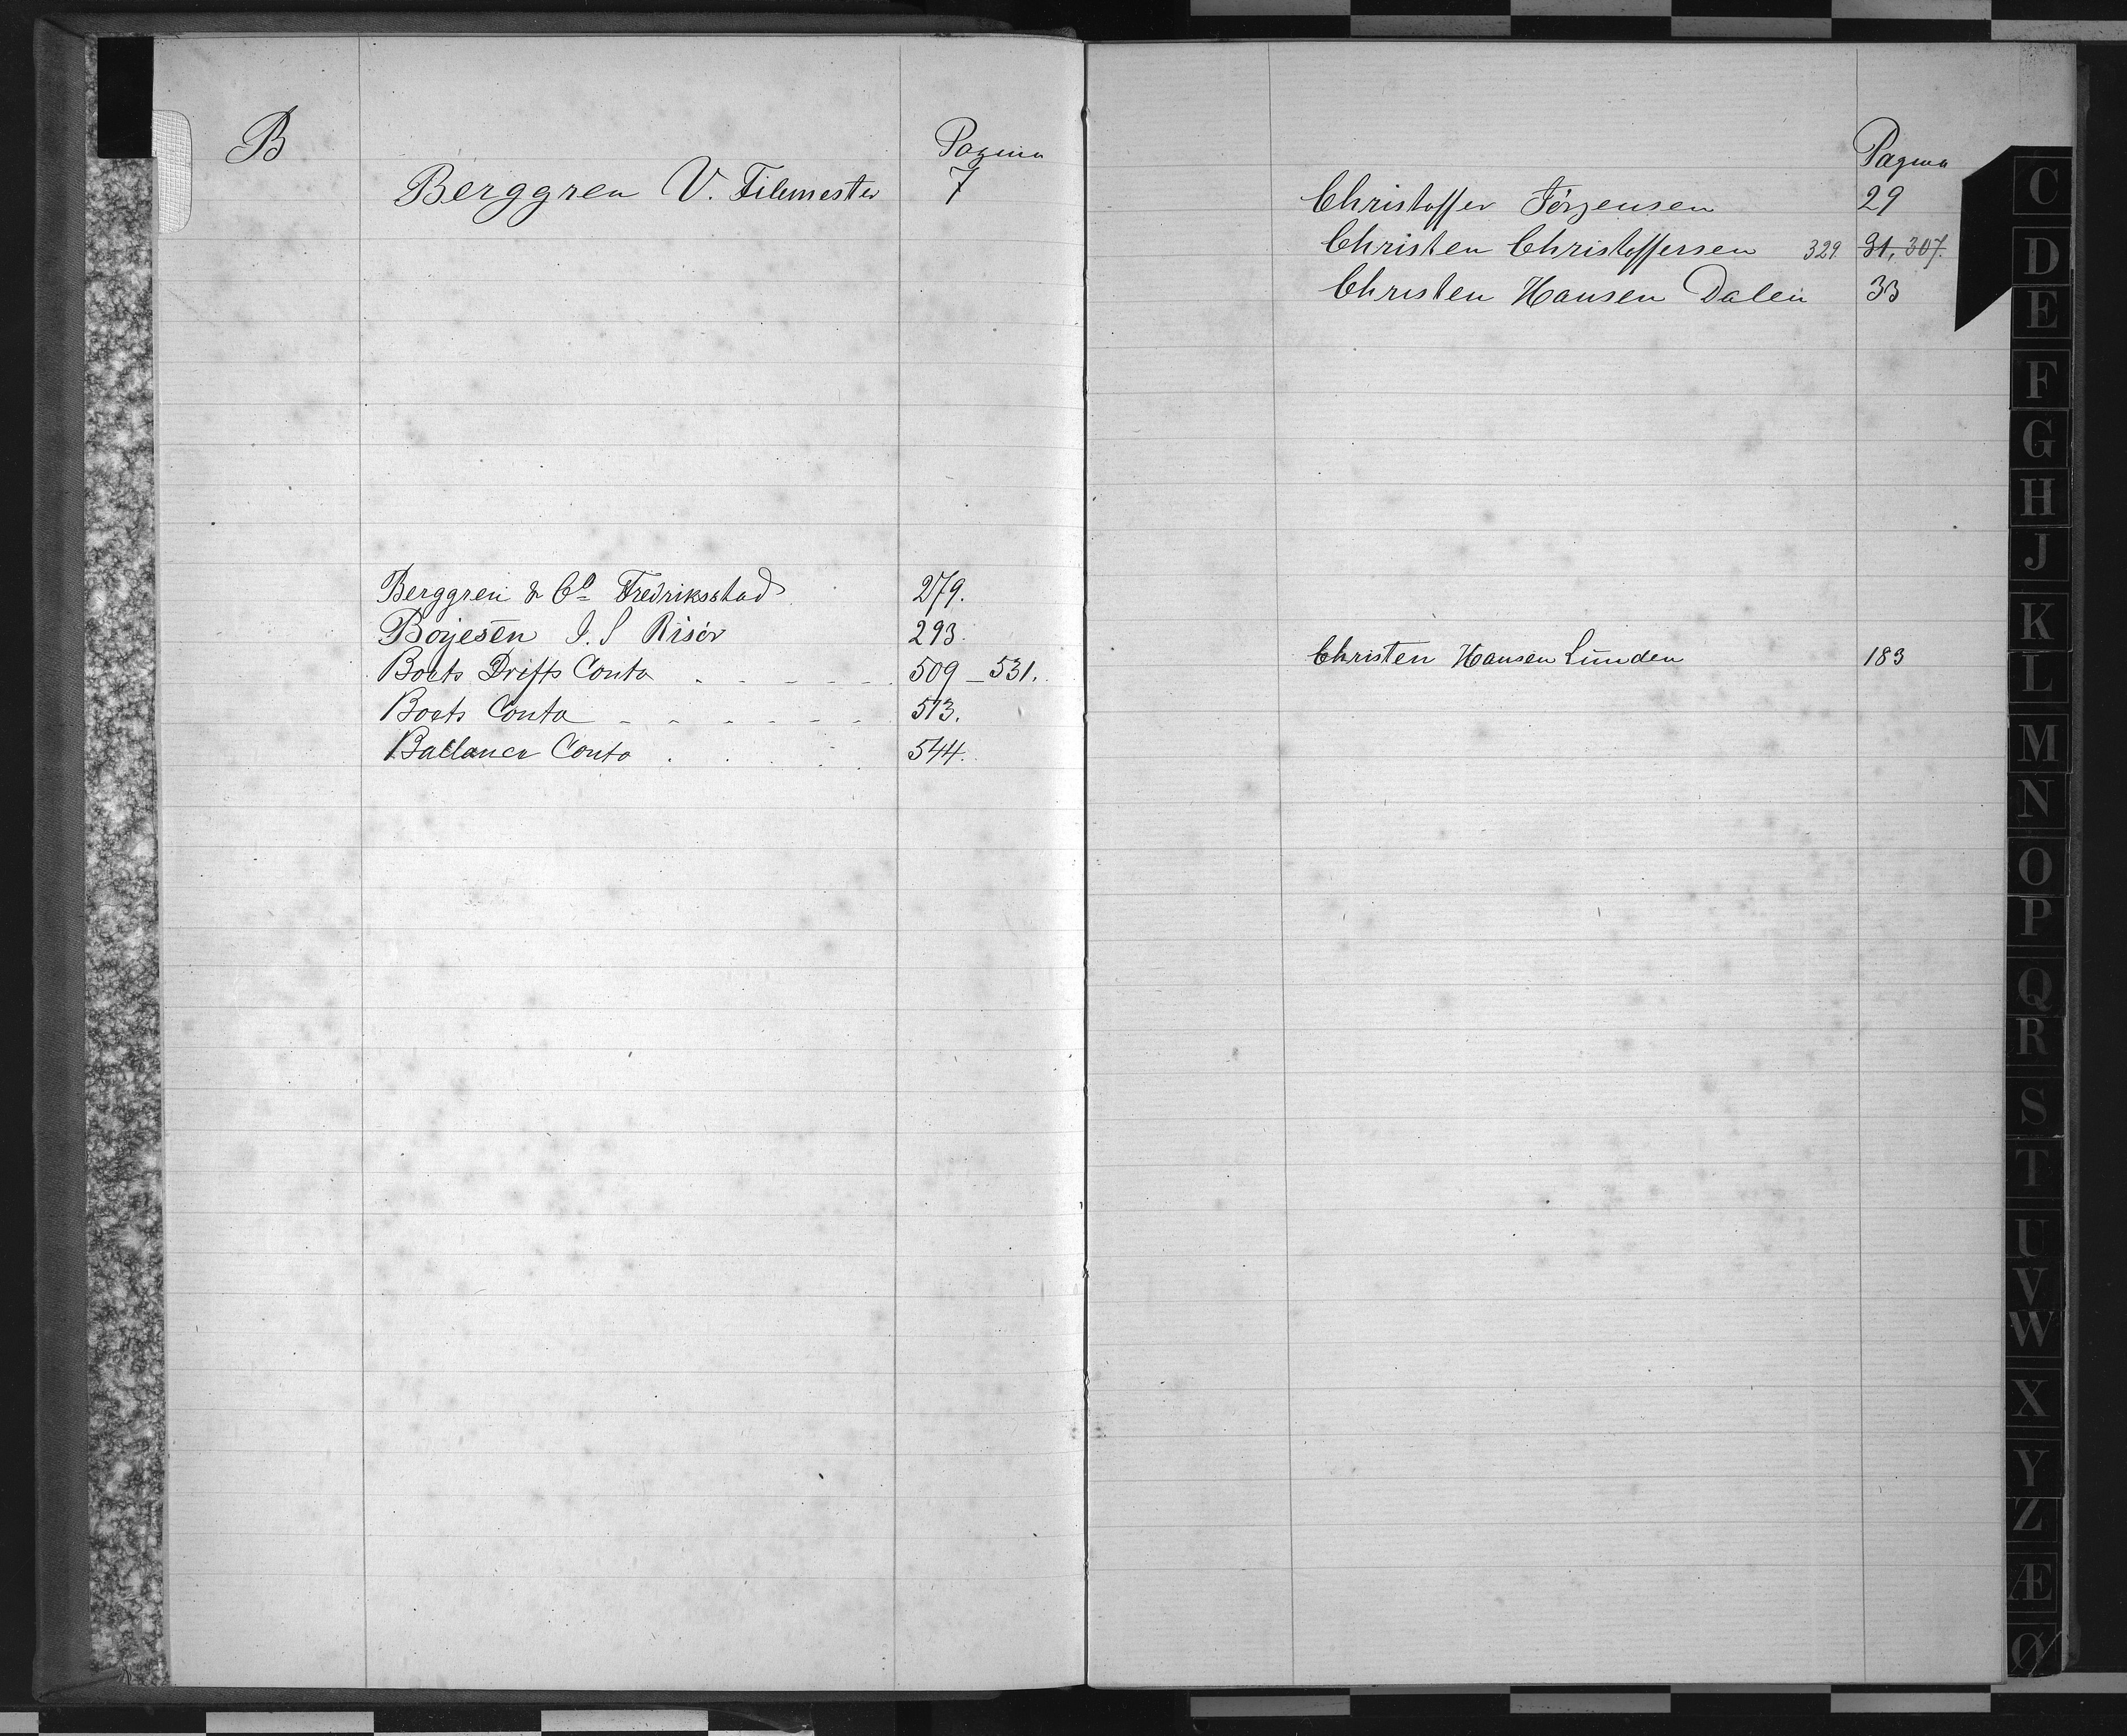 B
Pagina
Berggren V. Filemester 7
Berggren & Co Fredriksstad 279.
Boyesen I. S Risör 293.
Boets Drifts Conto 509 - 531.
Boets Conto 513.
Ballance Conto 544.
Pagina
Christoffer Jörgensen 29
Christen Christoffersen 329 31, 307.
Christen Hansen Dalen 33
Christen Hansen Lunden 183
C
D
E
F
G
H
J
K
L
M
N
O
P
Q
R
S
T
U
V
W
X
Y
Z
Æ
Ø